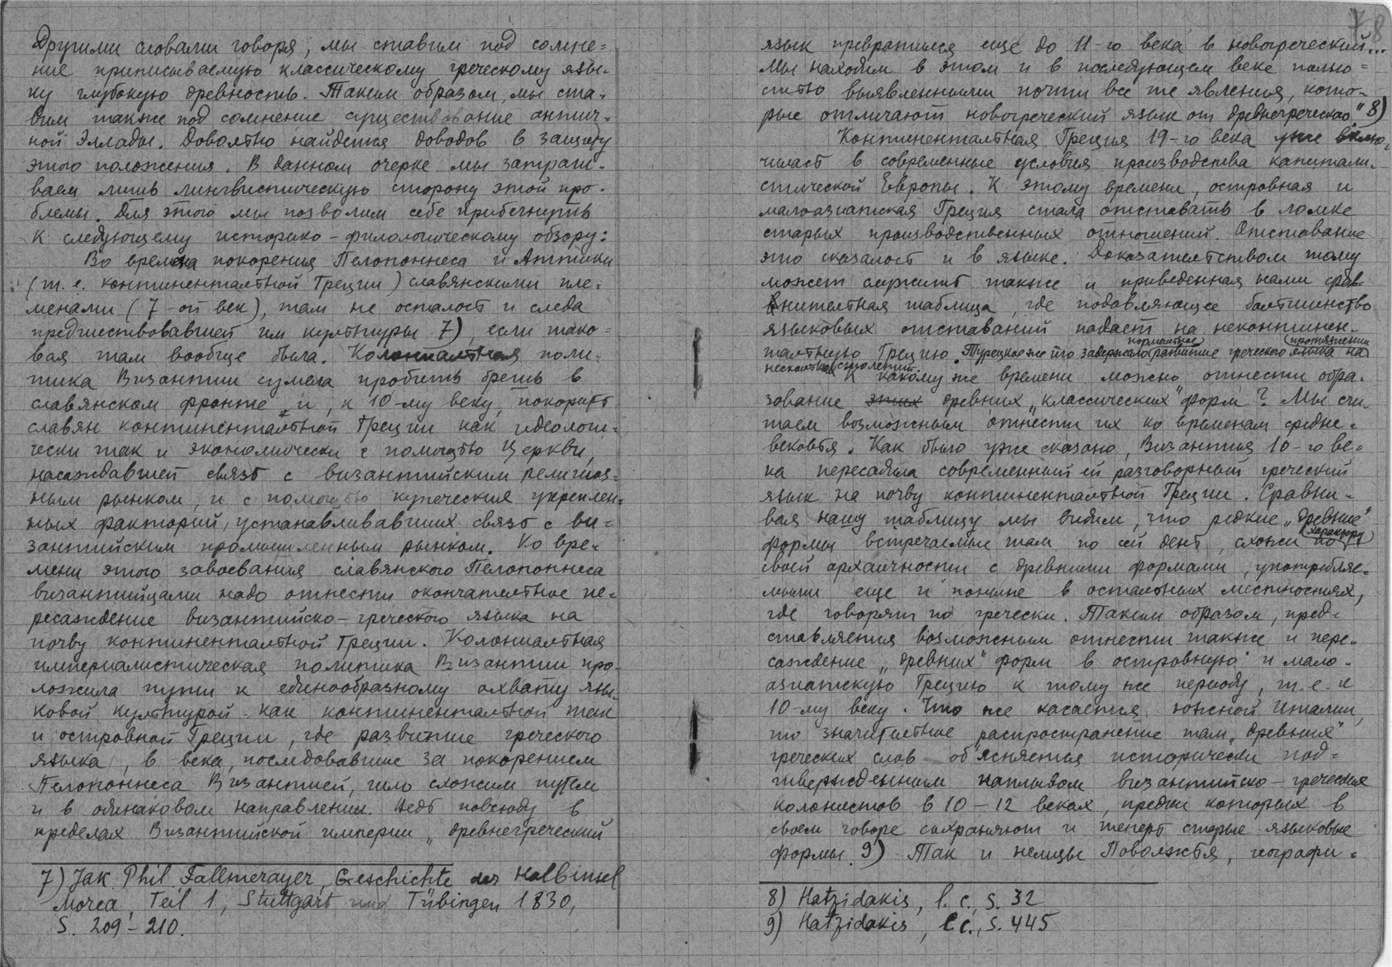 Другими словами говоря, мы ставим под сомне=
ние приписываемую классическому греческому язы-
ку глубокую древность. Таким образом, мы ста-
вим также под сомнение существование антич-
ной Эллады. Довольно найдется доводов в защиту
этого положения. В данном очерке мы затраги-
ваем лишь лингвистическую сторону этой про-
блемы. Для этого мы позволим себе прибегнуть
к следующему историко-филологическому обзору:
Во времена покорения Пелопоннеса и Аттики
(т.е. континентальной Греции) славянскими пле-
менами (7-ой век), там не осталось и следа
предшествовавшей им культуры 7), если тако-
вая там вообще была. Колониальная поли-
тика Византии сумела пробить брешь в
славянском фронте и, к 10-му веку, покорить
славян континентальной Греции как идеологи-
чески так и экономически с помощью Церкви,
насаждавшей связь с византийским религиоз-
ным рынком, и с помощью купеческих укреплен-
ных факторий, устанавливавших связь с ви-
зантийским промышленным рынком. Ко вре-
мени этого завоевания славянского Пелопоннеса
византийцами надо отнести окончательное пе-
ресаждение византийско-греческого языка на
почву континентальной Греции. Колониальная
империалистическая политика Византии про-
ложила пути к единообразному охвату язы-
ковой культурой как континентальной так
и островной Греции, где развитие греческого
языка, в века, последовавшие за покорением
Пелопоннеса Византией, шло схожим путем
и в одинаковом направлении. Ведь повсюду в
пределах Византийской империи „древнегреческий
7) Jak. Phil. Fallmerayer, Geschichte der Halbinsel
Morea Teil 1, Stuttgart und Tübingen 1830,
S. 209-210.
78
язык превратился еще до 11-го века в новогреческий...
Мы находим в этом и в последующем веке полно=
стью выявленными почти все те явления, кото-
рые отличают новогреческий язык от древнегреческого" 8)
Континентальная Греция 19-го века уже вклю-
чилась в современные условия производства капитали-
стической Европы. К этому времени, островная и
малоазиатская Греция стала отставать в ломке
старых производственных отношений. Отставание
это сказалось и в языке. Доказательством тому
может служить также и приведенная нами срав-
нительная таблица, где подавляющее большинство
языковых отставаний падает на неконтинен-
тальную Грецию. Турецкое же иго задержало нормальное развитие греческого языка на протяжении
нескольких столетий.
К какому же времени можно отнести обра-
зование этих древних „классических" форм? Мы счи-
таем возможным отнести их ко временам средне-
вековья. Как было уже сказано, Византия 10-го ве-
ка пересадила современный ей разговорный греческий
язык на почву континентальной Греции. Сравни-
вая нашу таблицу мы видим, что редкие „древние"
формы встречаемые там по сей день, схожи по характеру
своей архаичности с древними формами, употребляе-
мыми еще и поныне в остальных местностях,
где говорят по гречески. Таким образом, пред-
ставляется возможным отнести также и пере-
саждение „древних" форм в островную и мало-
азиатскую Грецию к тому же периоду, т.е. к
10-му веку. Что же касается южной Италии,
то значительное распространение там „древних"
греческих слов объясняется исторически под-
твержденным наплывом византийско-греческих
колонистов в 10-12 веках, предки которых в
своем говоре сохраняют и теперь старые языковые
формы. 9) Так и немцы Поволжья, географи-
8) Hatzidakis, l. c., S. 32
9) Hatzidakis, l. c., S. 445